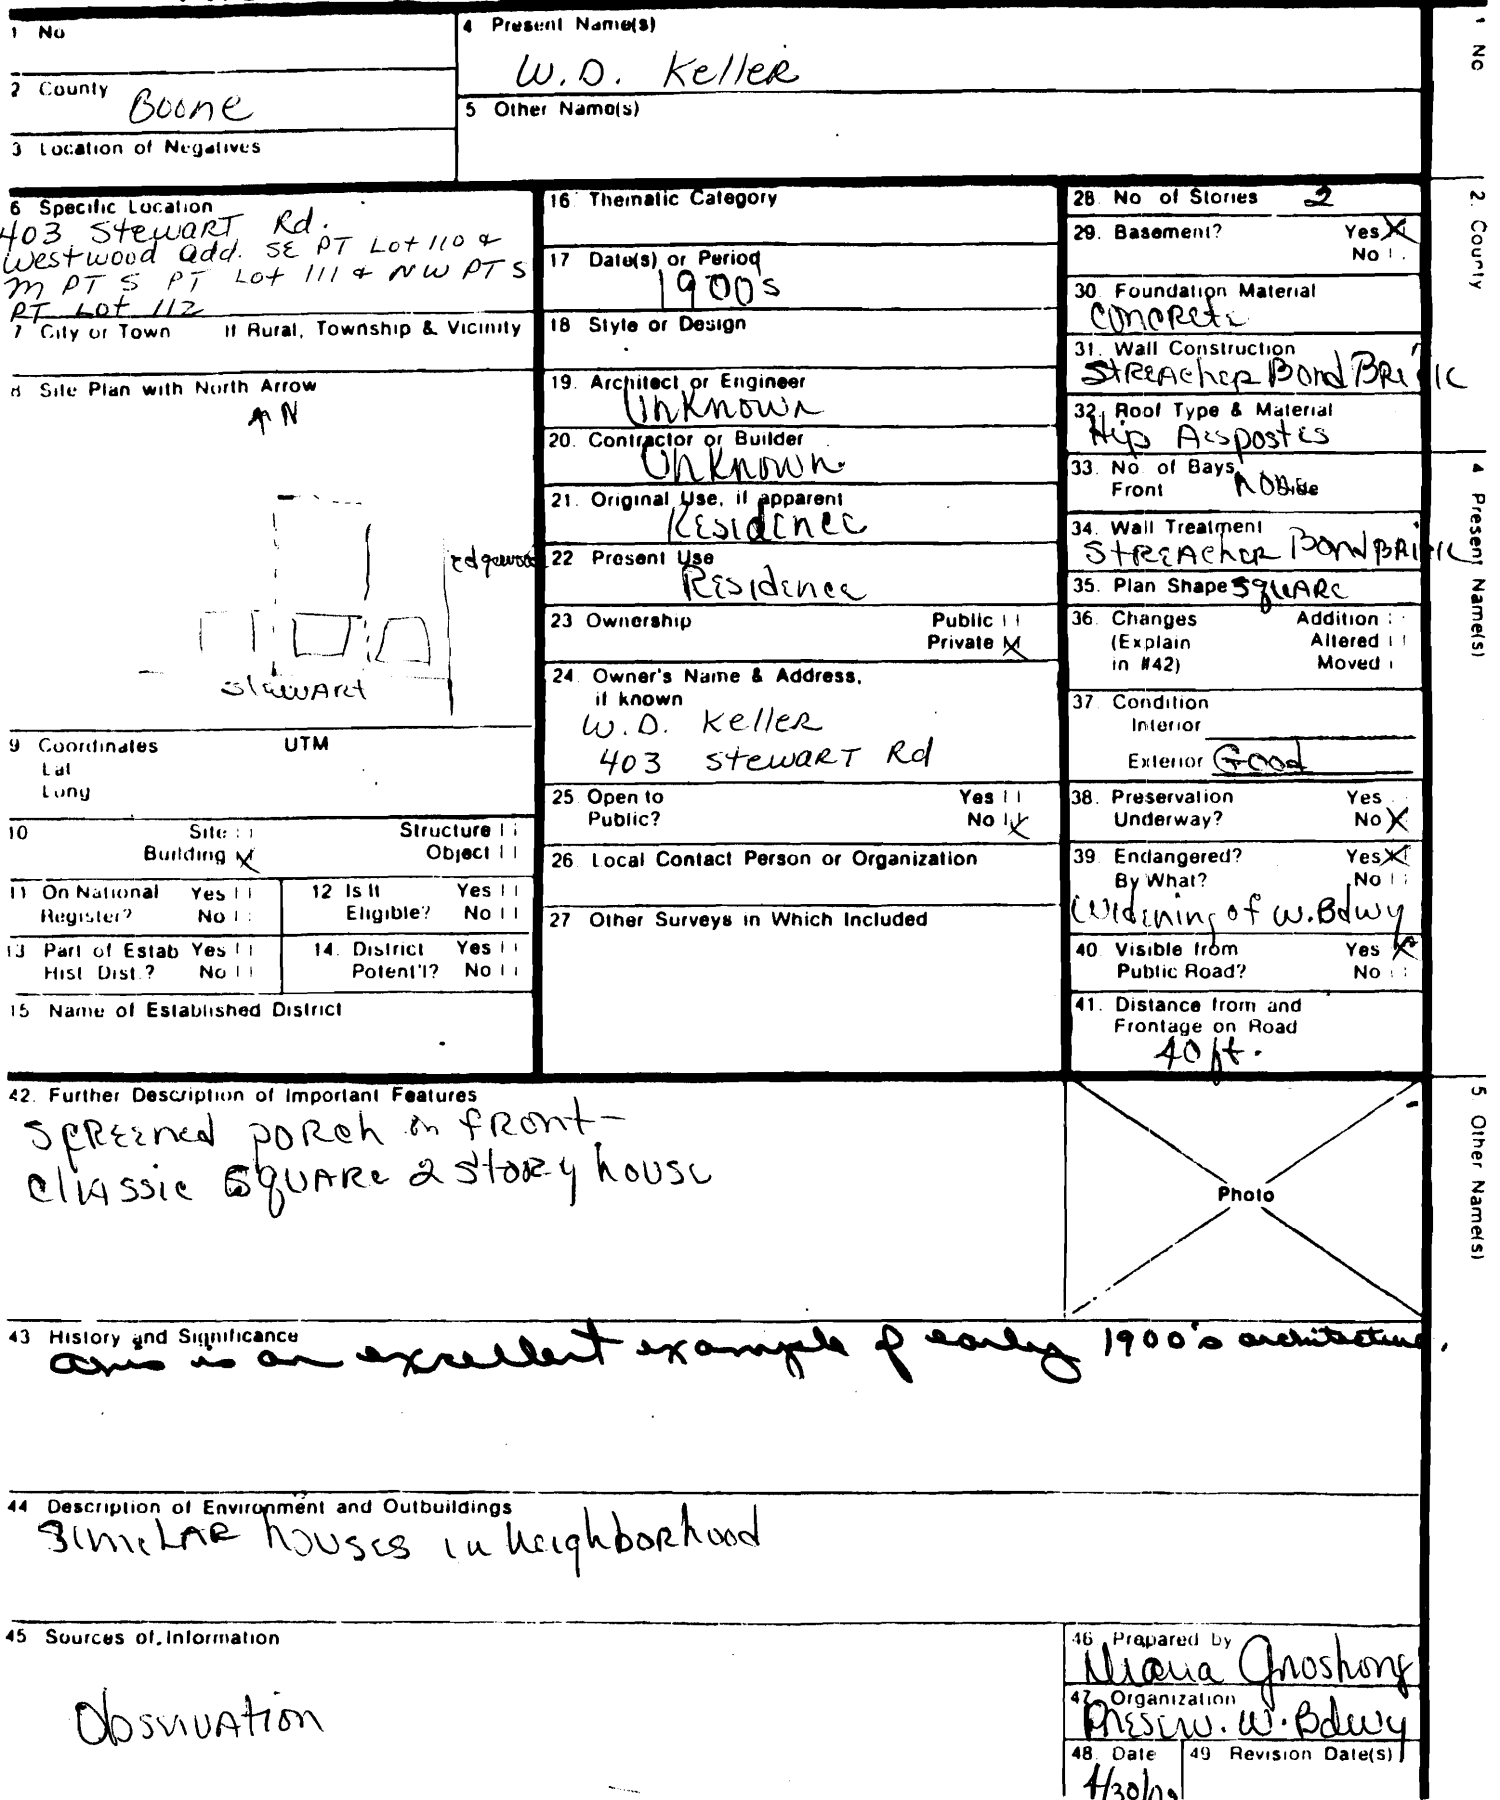 1 No
4 Present Name(s)
W.D. Keller
2 County
Boone
5 Other Name(s)
3 Location of Negatives
6 Specific Location
403 Stewart Rd.
Westwood Add. SE PT Lot 110 &
M PT S PT Lot 111 & NW PT S
PT Lot 112
7 City or Town If Rural, Township & Vicinity
8 Site Plan with North Arrow
N
Edgewood
Stewart
9 Coordinates UTM
Lat
Long
10 Site
Structure
Building X
Object
11 On National Register? Yes No
12 Is It Eligible? Yes No
13 Part of Estab Hist Dist.? Yes No
14. District Potent'l? Yes No
15 Name of Established District
16 Thematic Category
17 Date(s) or Period
1900s
18 Style or Design
19. Architect or Engineer
Unknown
20. Contractor or Builder
Unknown
21. Original Use, if apparent
Residence
22 Present Use
Residence
23 Ownership Public
Private X
24. Owner's Name & Address,
if known
W.D. Keller
403 Stewart Rd
25. Open to Yes
Public? No X
26. Local Contact Person or Organization
27 Other Surveys in Which Included
28. No of Stories 2
29. Basement? Yes X
No
30. Foundation Material
Concrete
31. Wall Construction
Streacher Bond Brick
32. Roof Type & Material
Hip Aespostes
33. No. of Bays
Front Side
34. Wall Treatment
Streacher Bond Brick
35. Plan Shape Square
36. Changes Addition
(Explain Altered
in #42) Moved
37. Condition
Interior
Exterior Good
38. Preservation Yes
Underway? No X
39. Endangered? Yes X
By What? No
Widening of W. Bdwy
40. Visible from Yes X
Public Road? No
41. Distance from and
Frontage on Road
40 ft.
42. Further Description of Important Features
Screened porch on front-
classic square 2 story house
Photo
43 History and Significance
This is an excellent example of early 1900's architecture.
44 Description of Environment and Outbuildings
Similar houses in neighborhood
45 Sources of Information
Observation
46 Prepared by
47 Organization
Preserv. W. Bdwy
48. Date
4/30/
49 Revision Date(s)
1 No
2. County
4 Present Name(s)
5 Other Name(s)